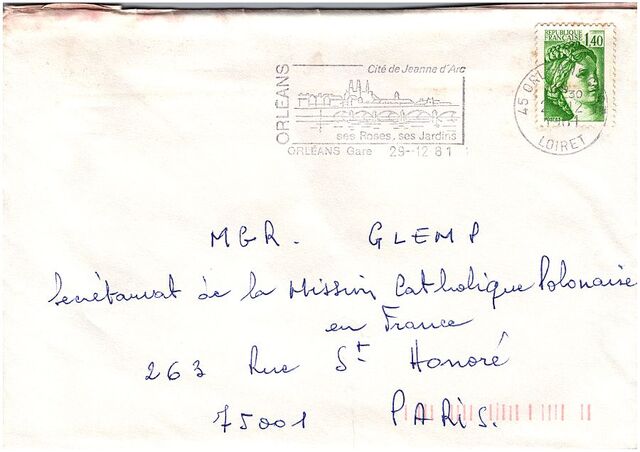 REPUBLIQUE
FRANÇAISE
1,40
Cité de Jeanne d'Arc
ORLÉANS
ses Roses, ses Jardins
ORLÉANS Gare 29-12 81
45 
LOIRET
MGR. GLEMP
Secrétariat de la Mission Catholique Polonaise
en France
263 Rue St Honoré
75001 PARIS.